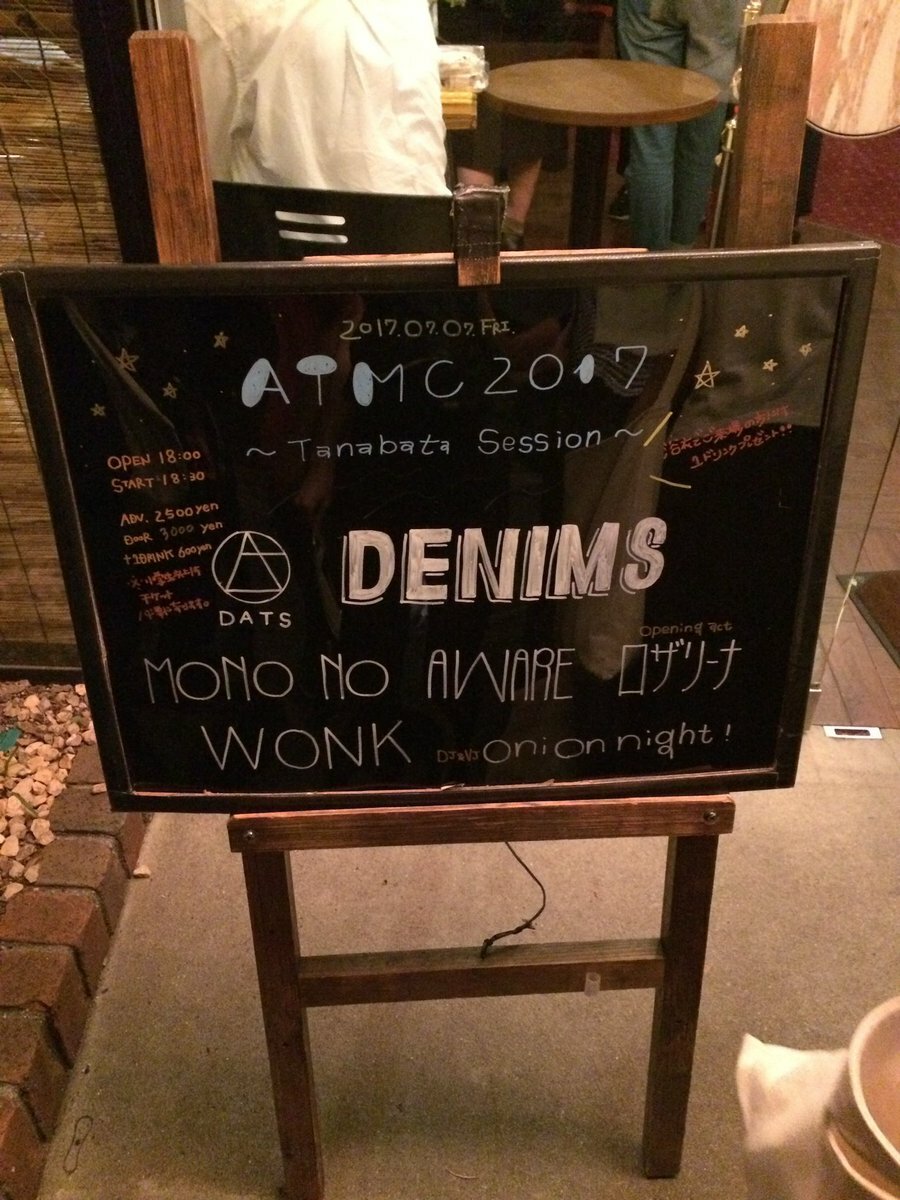 2017.07.07.FRI.
ATMC 2017
~ Tanabata Session ~
浴衣でご来場の方には
1ドリンクプレゼント!!
OPEN 18:00
START 18:30
ADV. 2500yen
DOOR 3000 yen
+1DRINK 600yen
※小学生以上
チケット
DATS
DENIMS
Opening act
MONO NO AWARE ロザリーナ
WONK DJ&VJ onion night!